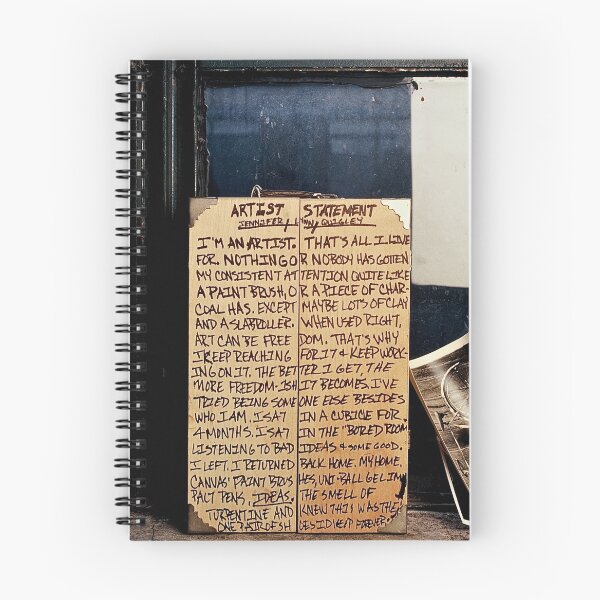 ARTIST STATEMENT
JENNIFER LYNN QUIGLEY
I'M AN ARTIST. THAT'S ALL I LIVE
FOR. NOTHING OR NOBODY HAS GOTTEN
MY CONSISTENT ATTENTION QUITE LIKE
A PAINT BRUSH, OR A PIECE OF CHAR-
COAL HAS. EXCEPT MAYBE LOTS OF CLAY
AND A SLABROLLER. WHEN USED RIGHT,
ART CAN BE FREEDOM. THAT'S WHY
I KEEP REACHING FOR IT & KEEP WORK-
ING ON IT. THE BETTER I GET, THE
MORE FREEDOM-ISH IT BECOMES. I'VE
TRIED BEING SOMEONE ELSE BESIDES
WHO I AM. I SAT IN A CUBICLE FOR
4 MONTHS. I SAT IN THE "BORED ROOM
LISTENING TO BAD IDEAS & SOME GOOD.
I LEFT. I RETURNED BACK HOME. MY HOME.
CANVAS' PAINT BRUSHES, UNI-BALL GEL IM
PACT PENS, IDEAS. THE SMELL OF
TURPENTINE AND KNEW THIS WAS THE
ONE PAIR OF SHOES ID KEEP FOREVER.